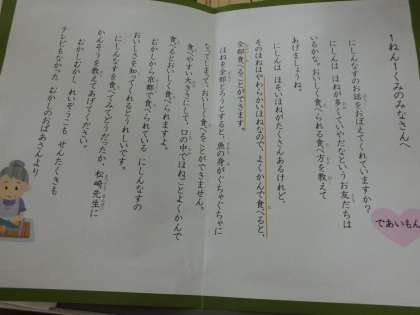 1ねん1くみのみなさんへ
であいもん
にしんなすのお話をおぼえてくれていますか？
にしんは ほねが多くていやだなというお友だちは
いるかな。おいしく食べられる食べ方を教えて
あげましょうね。
にしんは ほそいほねがたくさんあるけれど、
そのほねはやわらかいほねなので、よくかんで食べると、
全部食べることができます。
ほねを全部とろうとすると、魚の身がぐちゃぐちゃに
なってしまって、おいしく食べることができません。
食べやすい大きさにして、口の中でほねごとよくかんで
食べるとおいしく食べられますよ。
むかしから京都で食べられている にしんなすの
おいしさを知ってくれるとうれしいです。
にしんなすを食べてみてどうだったか、松崎先生に
かんそうを教えてあげてください。
むかしむかし れいぞうこも せんたくきも
テレビもなかった むかしのおばあさんより